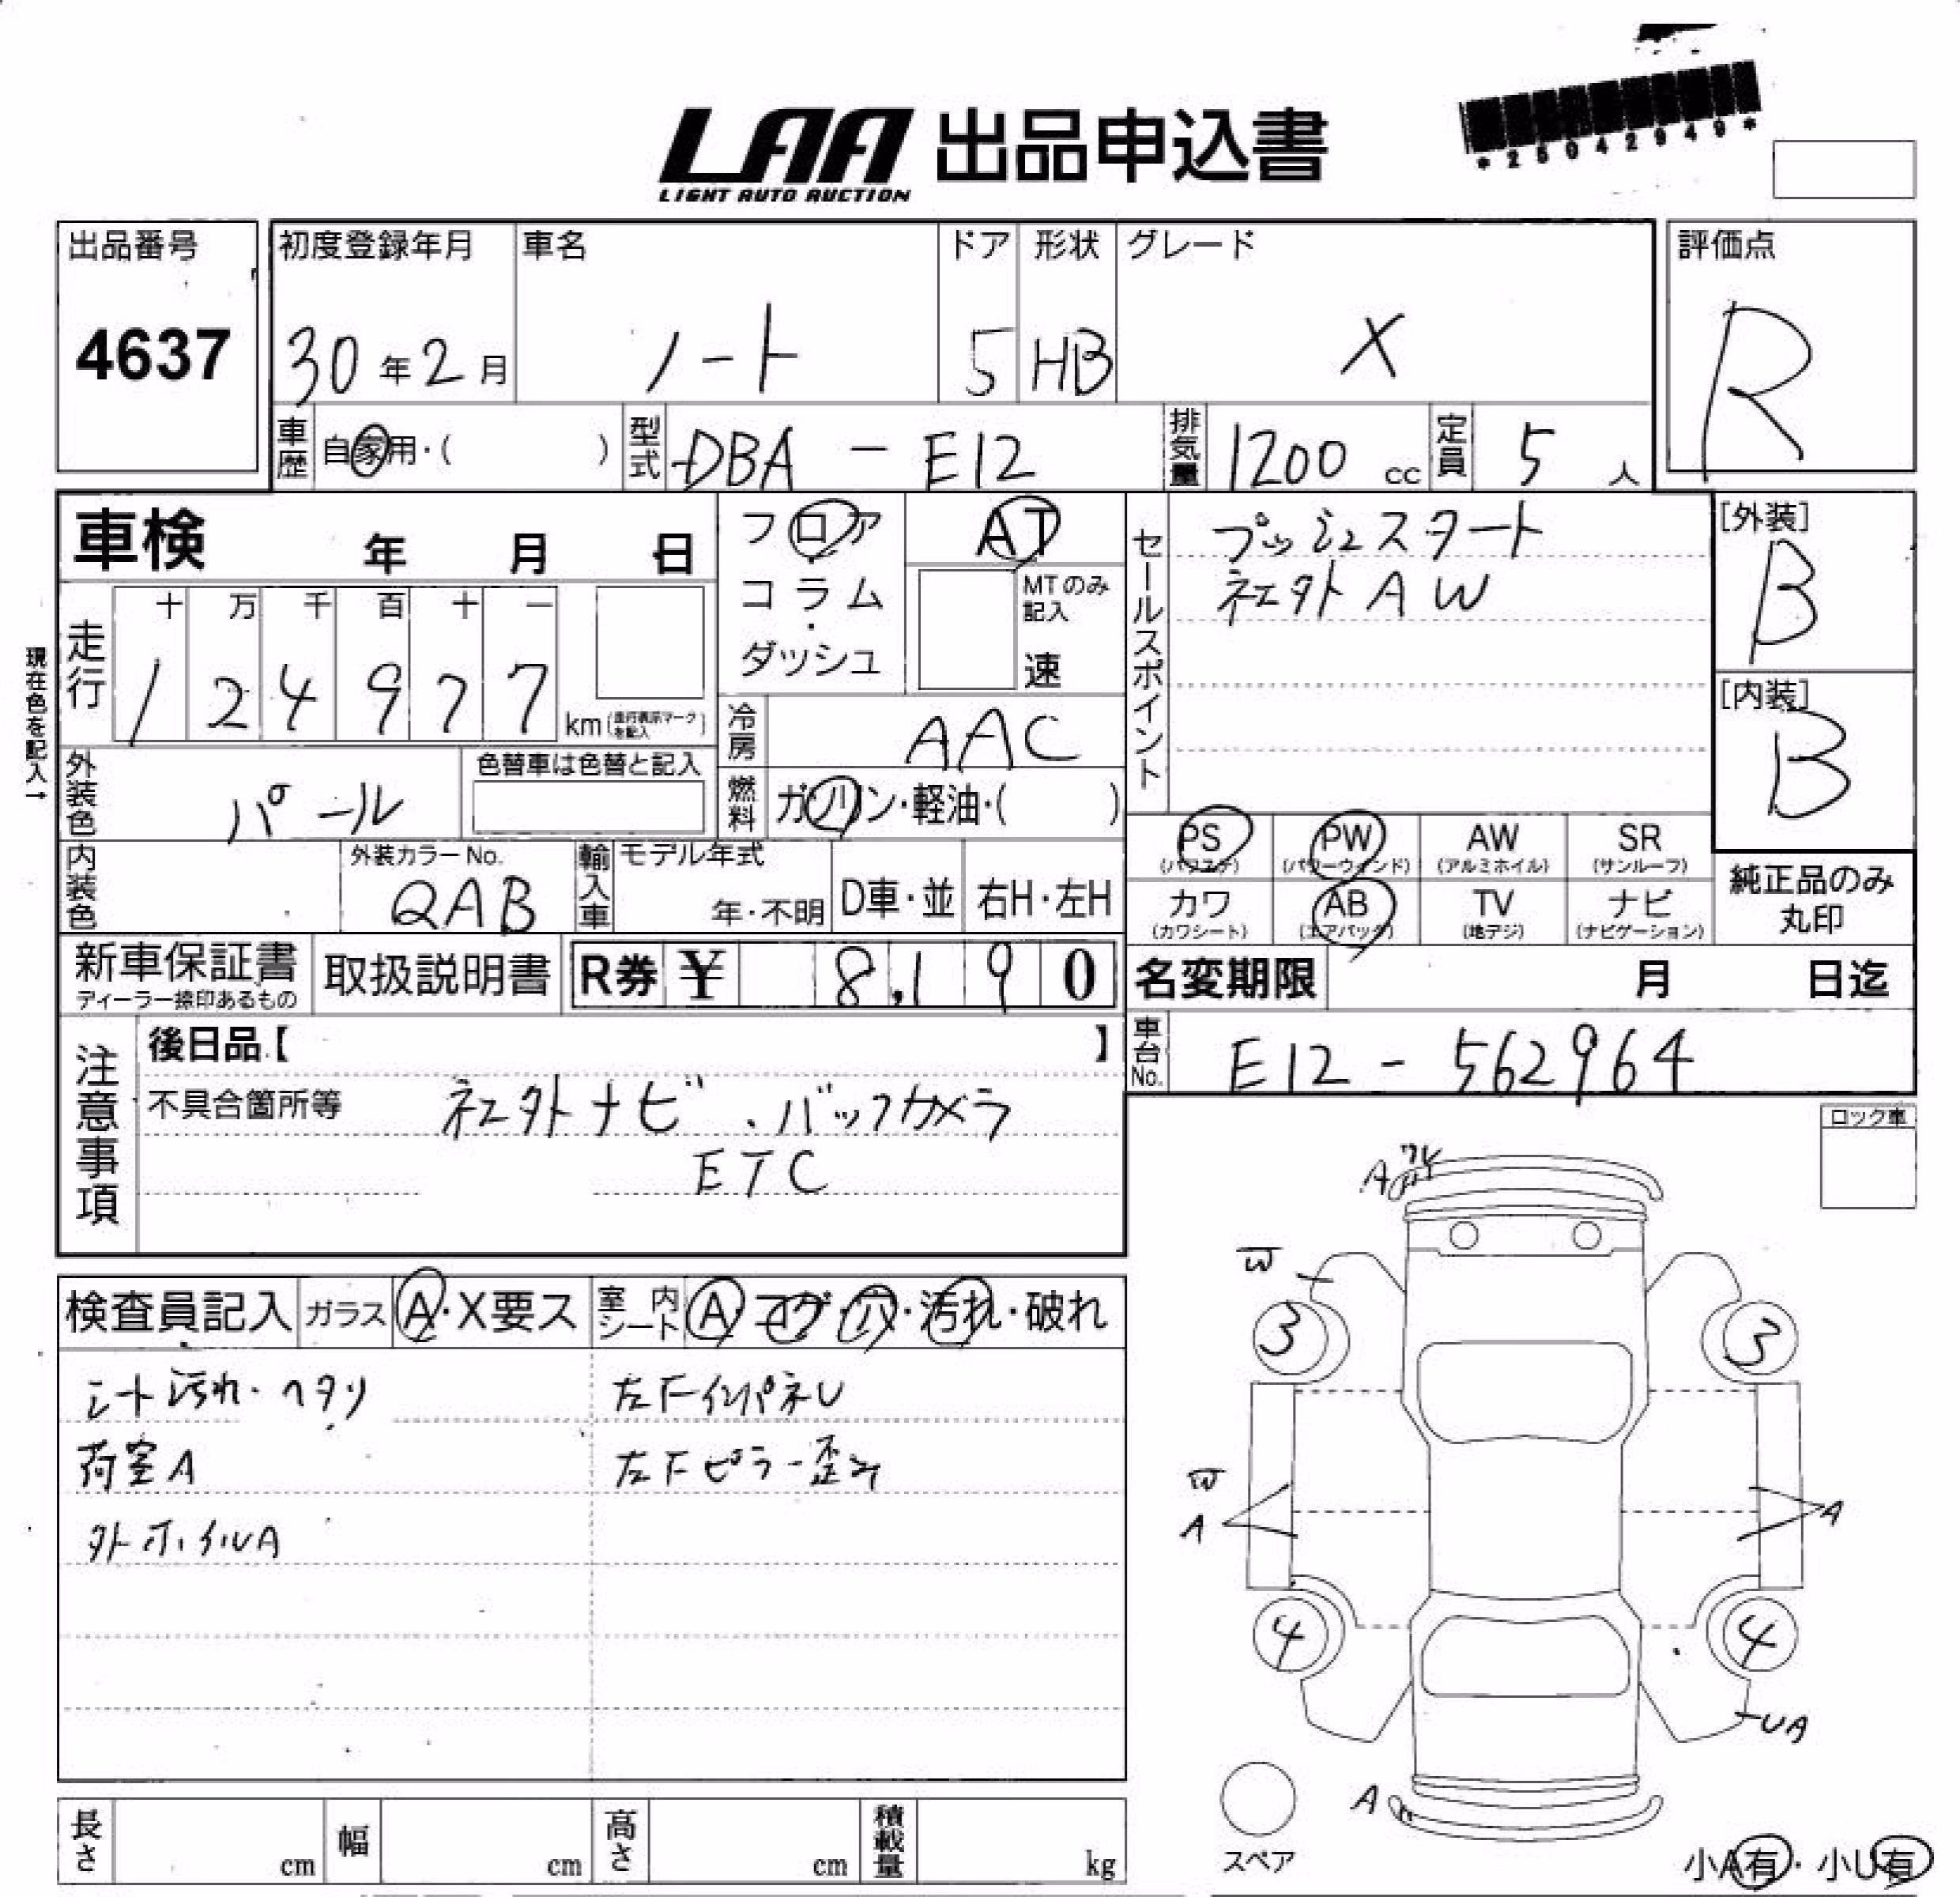 LAA 出品申込書
LIGHT AUTO AUCTION
*25042949*
出品番号
4637
初度登録年月
30年2月
車名
ノート
ドア
5
形状
HB
グレード
X
評価点
R
車歴
自家用・( )
型式
DBA - E12
排気量
1200 cc
定員
5 人
車検 年 月 日
フロア・コラム・ダッシュ
AT
MTのみ記入
速
セールスポイント
プッシュスタート
社外AW
[外装]
B
[内装]
B
現在色を記入→
走行
十 万 千 百 十 一
1 2 4 9 7 7 km(走行表示マークを記入)
冷房
AAC
外装色
パール
色替車は色替と記入
燃料
ガソリン・軽油・( )
内装色
外装カラーNo.
QAB
輸入車
モデル年式
年・不明
D車・並
右H・左H
PS (パワステ)
PW (パワーウィンド)
AW (アルミホイル)
SR (サンルーフ)
カワ (カワシート)
AB (エアバッグ)
TV (地デジ)
ナビ (ナビゲーション)
純正品のみ丸印
新車保証書
ディーラー捺印あるもの
取扱説明書
R券 ¥ 8,190
名変期限 月 日迄
車台No.
E12 - 562964
注意事項
後日品【 】
不具合箇所等 社外ナビ・バックカメラ
ETC
ロック車
検査員記入
ガラス
A・X要ス
室内シート
A・コゲ・穴・汚れ・破れ
シート汚れ・ヘタリ
荷室A
外ホイルA
左FインパネU
左Fピラー歪み
A
W
3
3
W
A
A
4
4
UA
A
スペア
小A有・小U有
長さ cm
幅 cm
高さ cm
積載量 kg